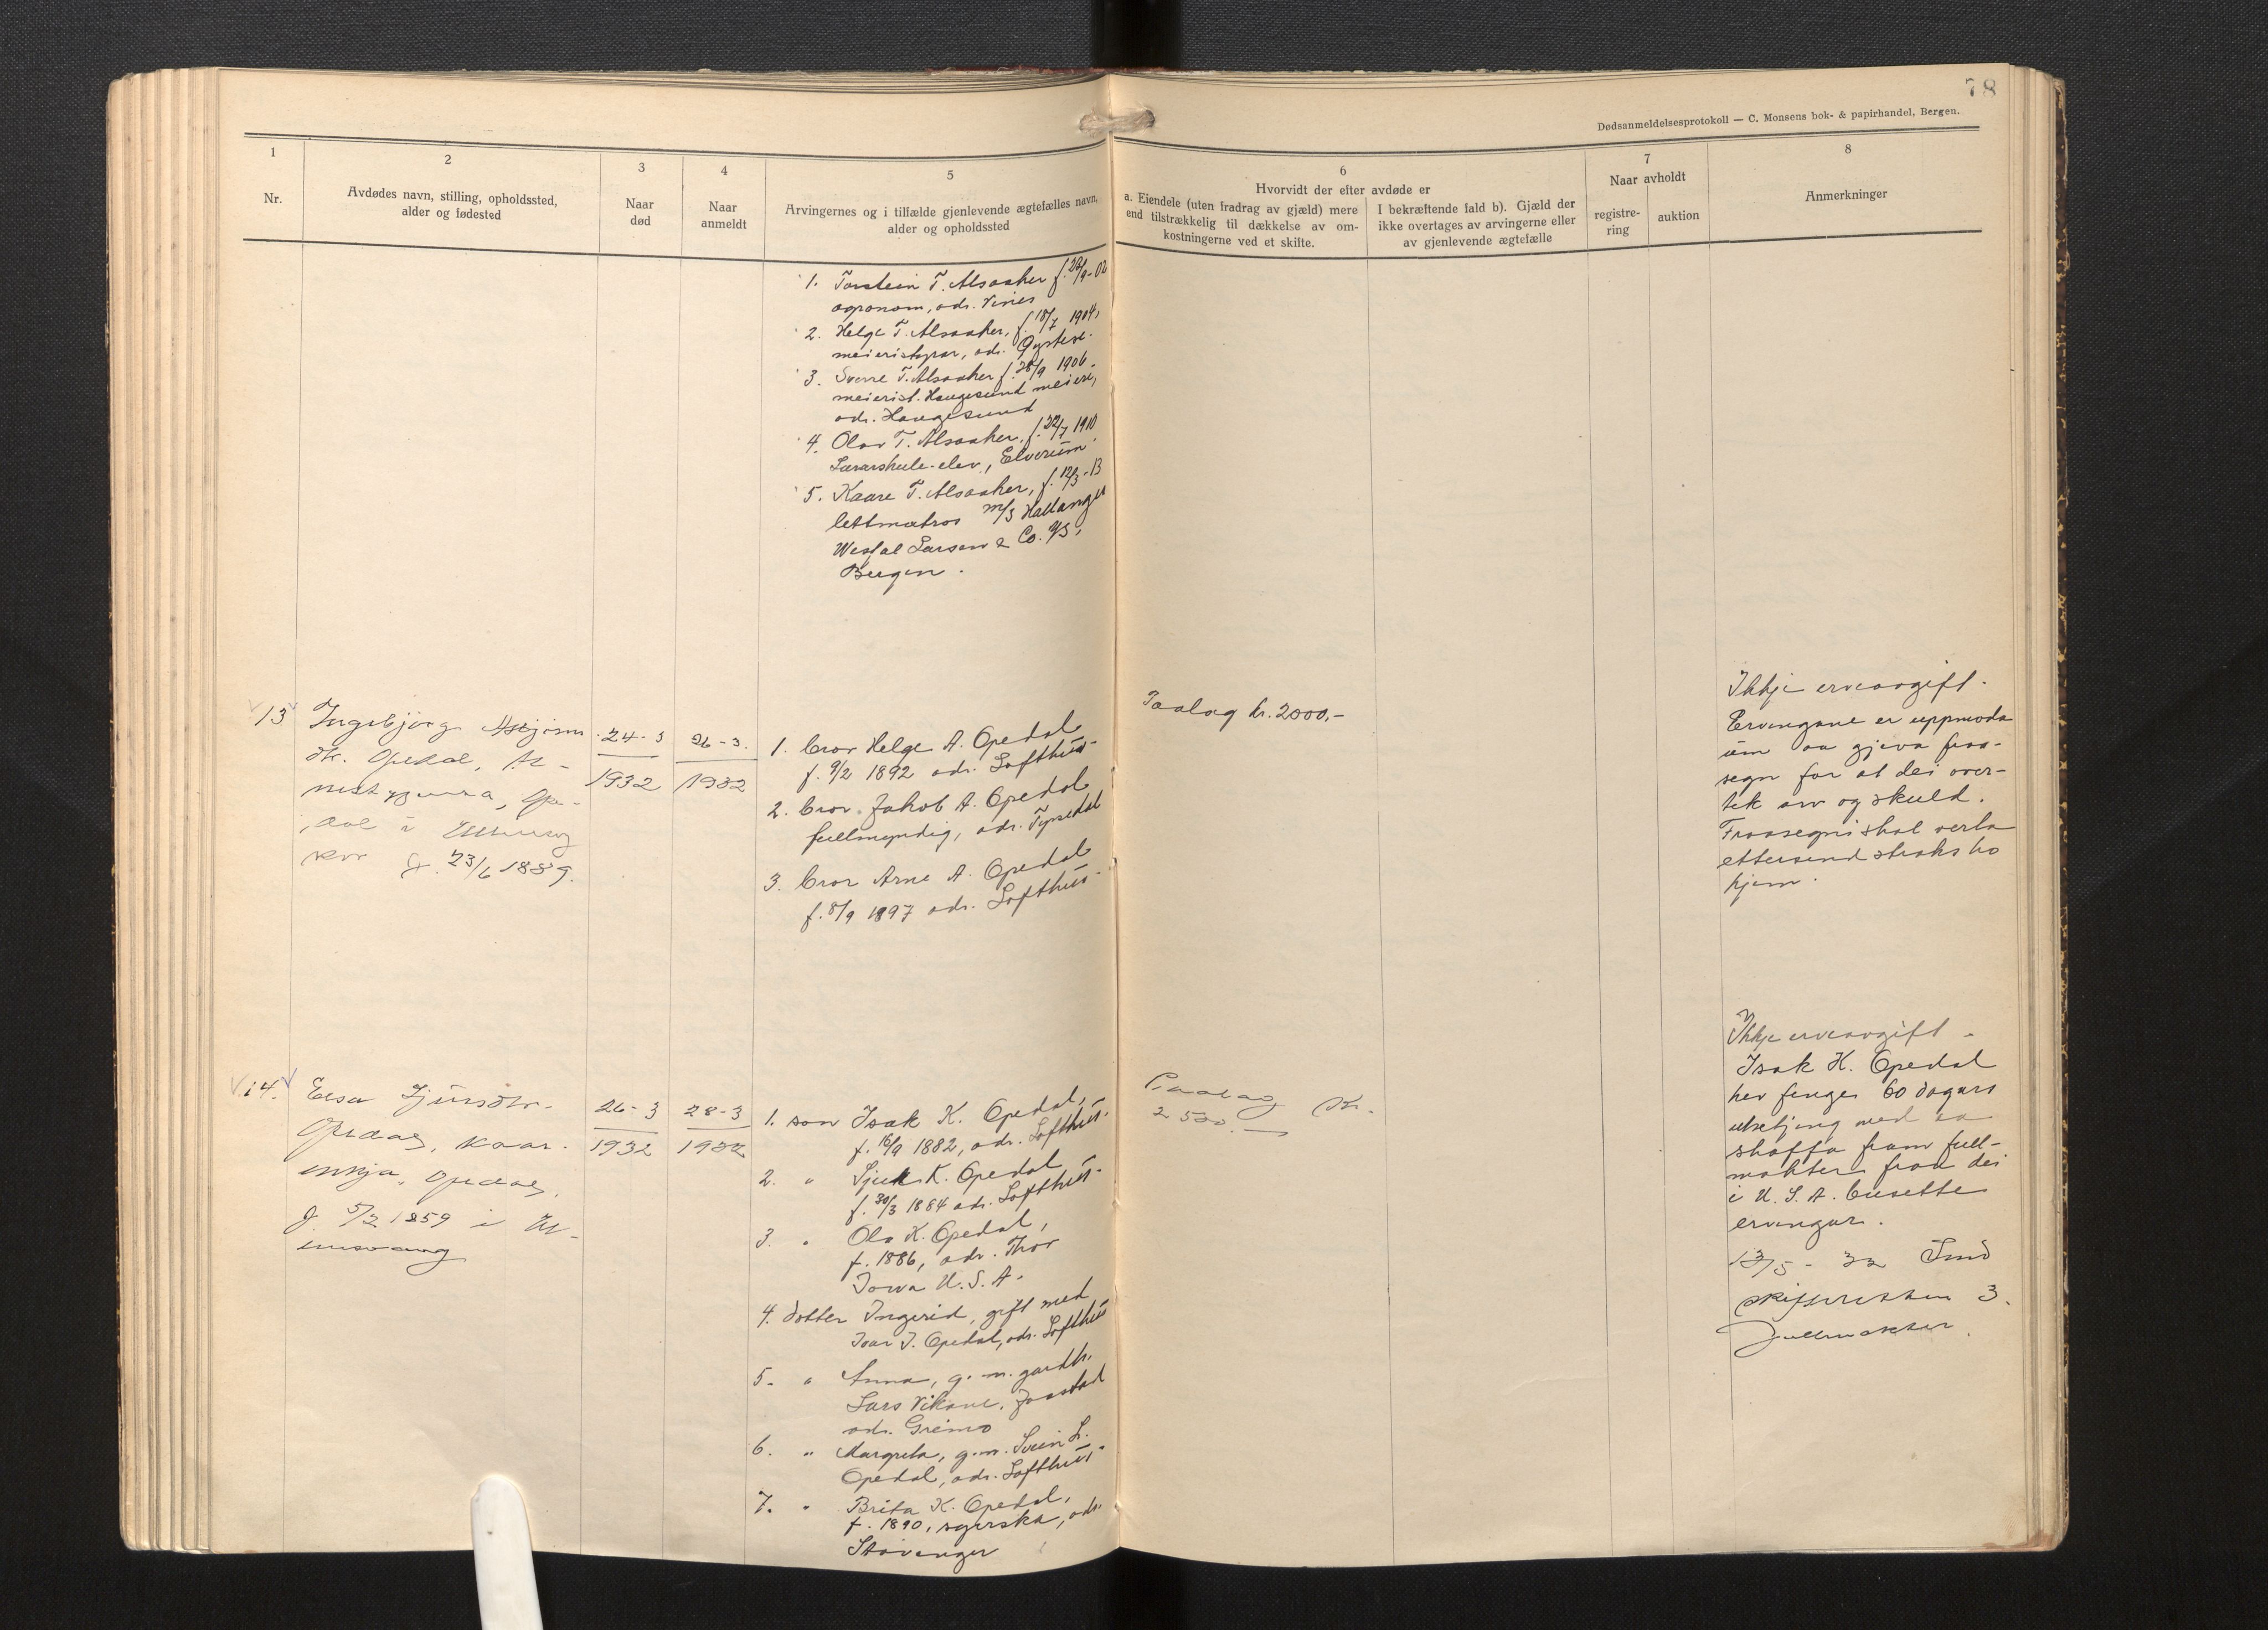 78
Dødsanmeldelsesprotokoll — C. Monsens bok- & papirhandel, Bergen.
1
Nr.
2
Avdødes navn, stilling, opholdssted,
alder og fødested
3
Naar
død
4
Naar
anmeldt
5
Arvingernes og i tilfælde gjenlevende ægtefælles navn,
alder og opholdssted
6
Hvorvidt der efter avdøde er
a. Eiendele (uten fradrag av gjæld) mere
end tilstrækkelig til dækkelse av om-
kostningerne ved et skifte.
I bekræftende fald b). Gjæld der
ikke overtages av arvingerne eller
av gjenlevende ægtefælle
7
Naar avholdt
registre-
ring
auktion
8
Anmerkninger
1. Torstein T. Alsaaker f. 26/9-02
agronom, adr. Vines
2. Helge T. Alsaaker, f. 18/7 1904,
meieristyrar, adr. Øystese.
3. Sverre T. Alsaaker f. 28/9 1906.
meierist. Haugesund meieri,
adr. Haugesund
4. Olav T. Alsaaker, f. 22/7 1910,
Lærarskule-elev, Elverum
5. Kaare T. Alsaaker, f. 12/3-13
lettmatros m/s Hallanger
Westfal Larsen & Co. A/S,
Bergen.
13
Ingebjørg Asbjørns
dtr. Opedal,
Ope-
dal i Ullensvang
f. 23/6 1889.
24-3
1932
26-3.
1932
1. bror Helge A. Opedal
f. 9/2 1892 adr. Lofthus.
2. bror Jakob A. Opedal
fullmyndig, adr. Tyssedal
3. bror Arne A. Opedal
f. 8/9 1897 adr. Lofthus.
Paalag kr. 2000,-
Ikkje erveavgift.
Ervingane er uppmoda
um aa gjeva fraa-
segn for at dei over-
tek arv og skuld.
Fraasegni skal verta
ettersend straks ho
kjem.
14.
Elsa Sjursdtr.
Opedal, kaar-
enkja, Opedal,
f. 5/2 1859 i Ul-
lensvang
26-3
1932
28-3
1932
1. son Isak K. Opedal,
f. 16/9 1882, adr. Lofthus.
2. " Sjur K. Opedal
f. 30/3 1884 adr. Lofthus.
3. " Ola K. Opedal,
f. 1886, adr. Thor
Iowa U.S.A.
4. dotter Ingerid, gift med
Ivar J. Opedal, adr. Lofthus
5. " Anna, g. m. gardbr.
Lars Vikane, Jaastad
adr. Grimo
6. " Margreta, g.m. Svein L.
Opedal, adr. Lofthus.
7. " Brita K. Opedal,
f. 1890, syerska, adr.
Stavanger
Paalag kr.
2500.—
Ikkje erveavgift.
Isak K. Opedal
hev fenge 60 dagars
utsetjing med aa
skaffa fram full-
makter fraa dei
i U.S.A. busette
ervingar.
13/5 - 32 Send
skifteretten 3.
fullmakter.